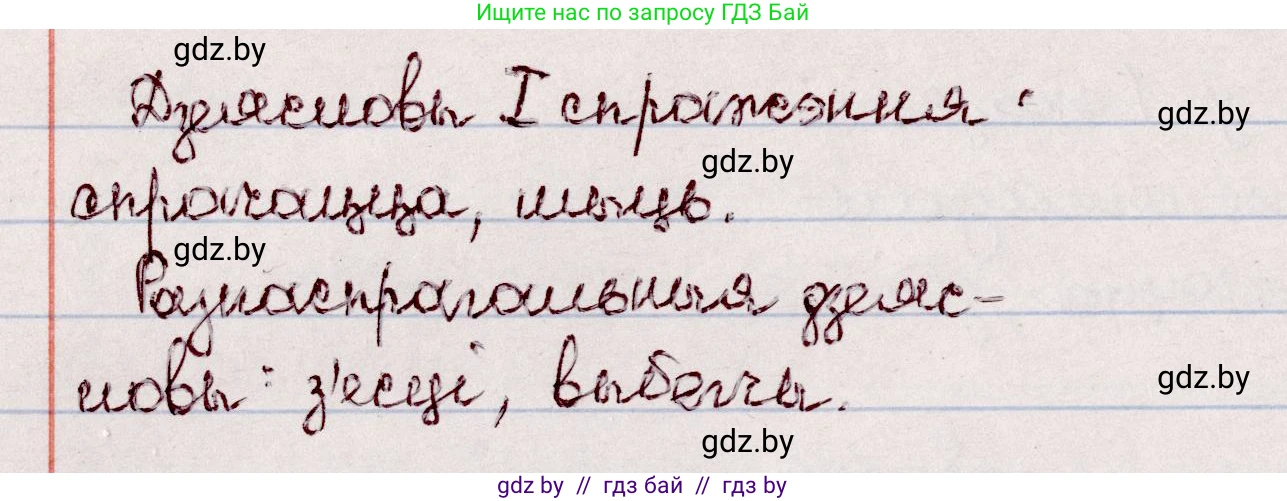 Ищите нас по запросу ГДЗ Бай
gdz.by
Дзеясловы I спражэння:
gdz.by
gdz.by
спрачацца, мыць.
gdz.by
Рознаспрагальныя дзеяс-
ловы: з'есці, выбегчы.
gdz.by
gdz.by
gdz.by // гдз бай // гдз by